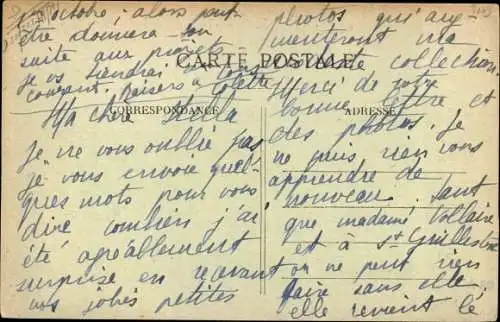 CARTE POSTALE
CORRESPONDANCE
ADRESSE
Ma chère
Je ne vous oublie pas
je vous envoie quel-
ques mots pour vous
dire combien j'ai
été agréablement
surprise en recevant
vos jolies petites
photos qui aug-
menteront ma
collection
Merci de votre
bonne lettre et
des photos. Je
ne puis rien vous
apprendre de
nouveau. Sauf
que madame Vollaire
est à St
on ne peut rien
faire sans elle.
elle revient le
octobre ; alors peut
être donnera
suite aux projets
Je vs tiendrai au
courant. Baisers à